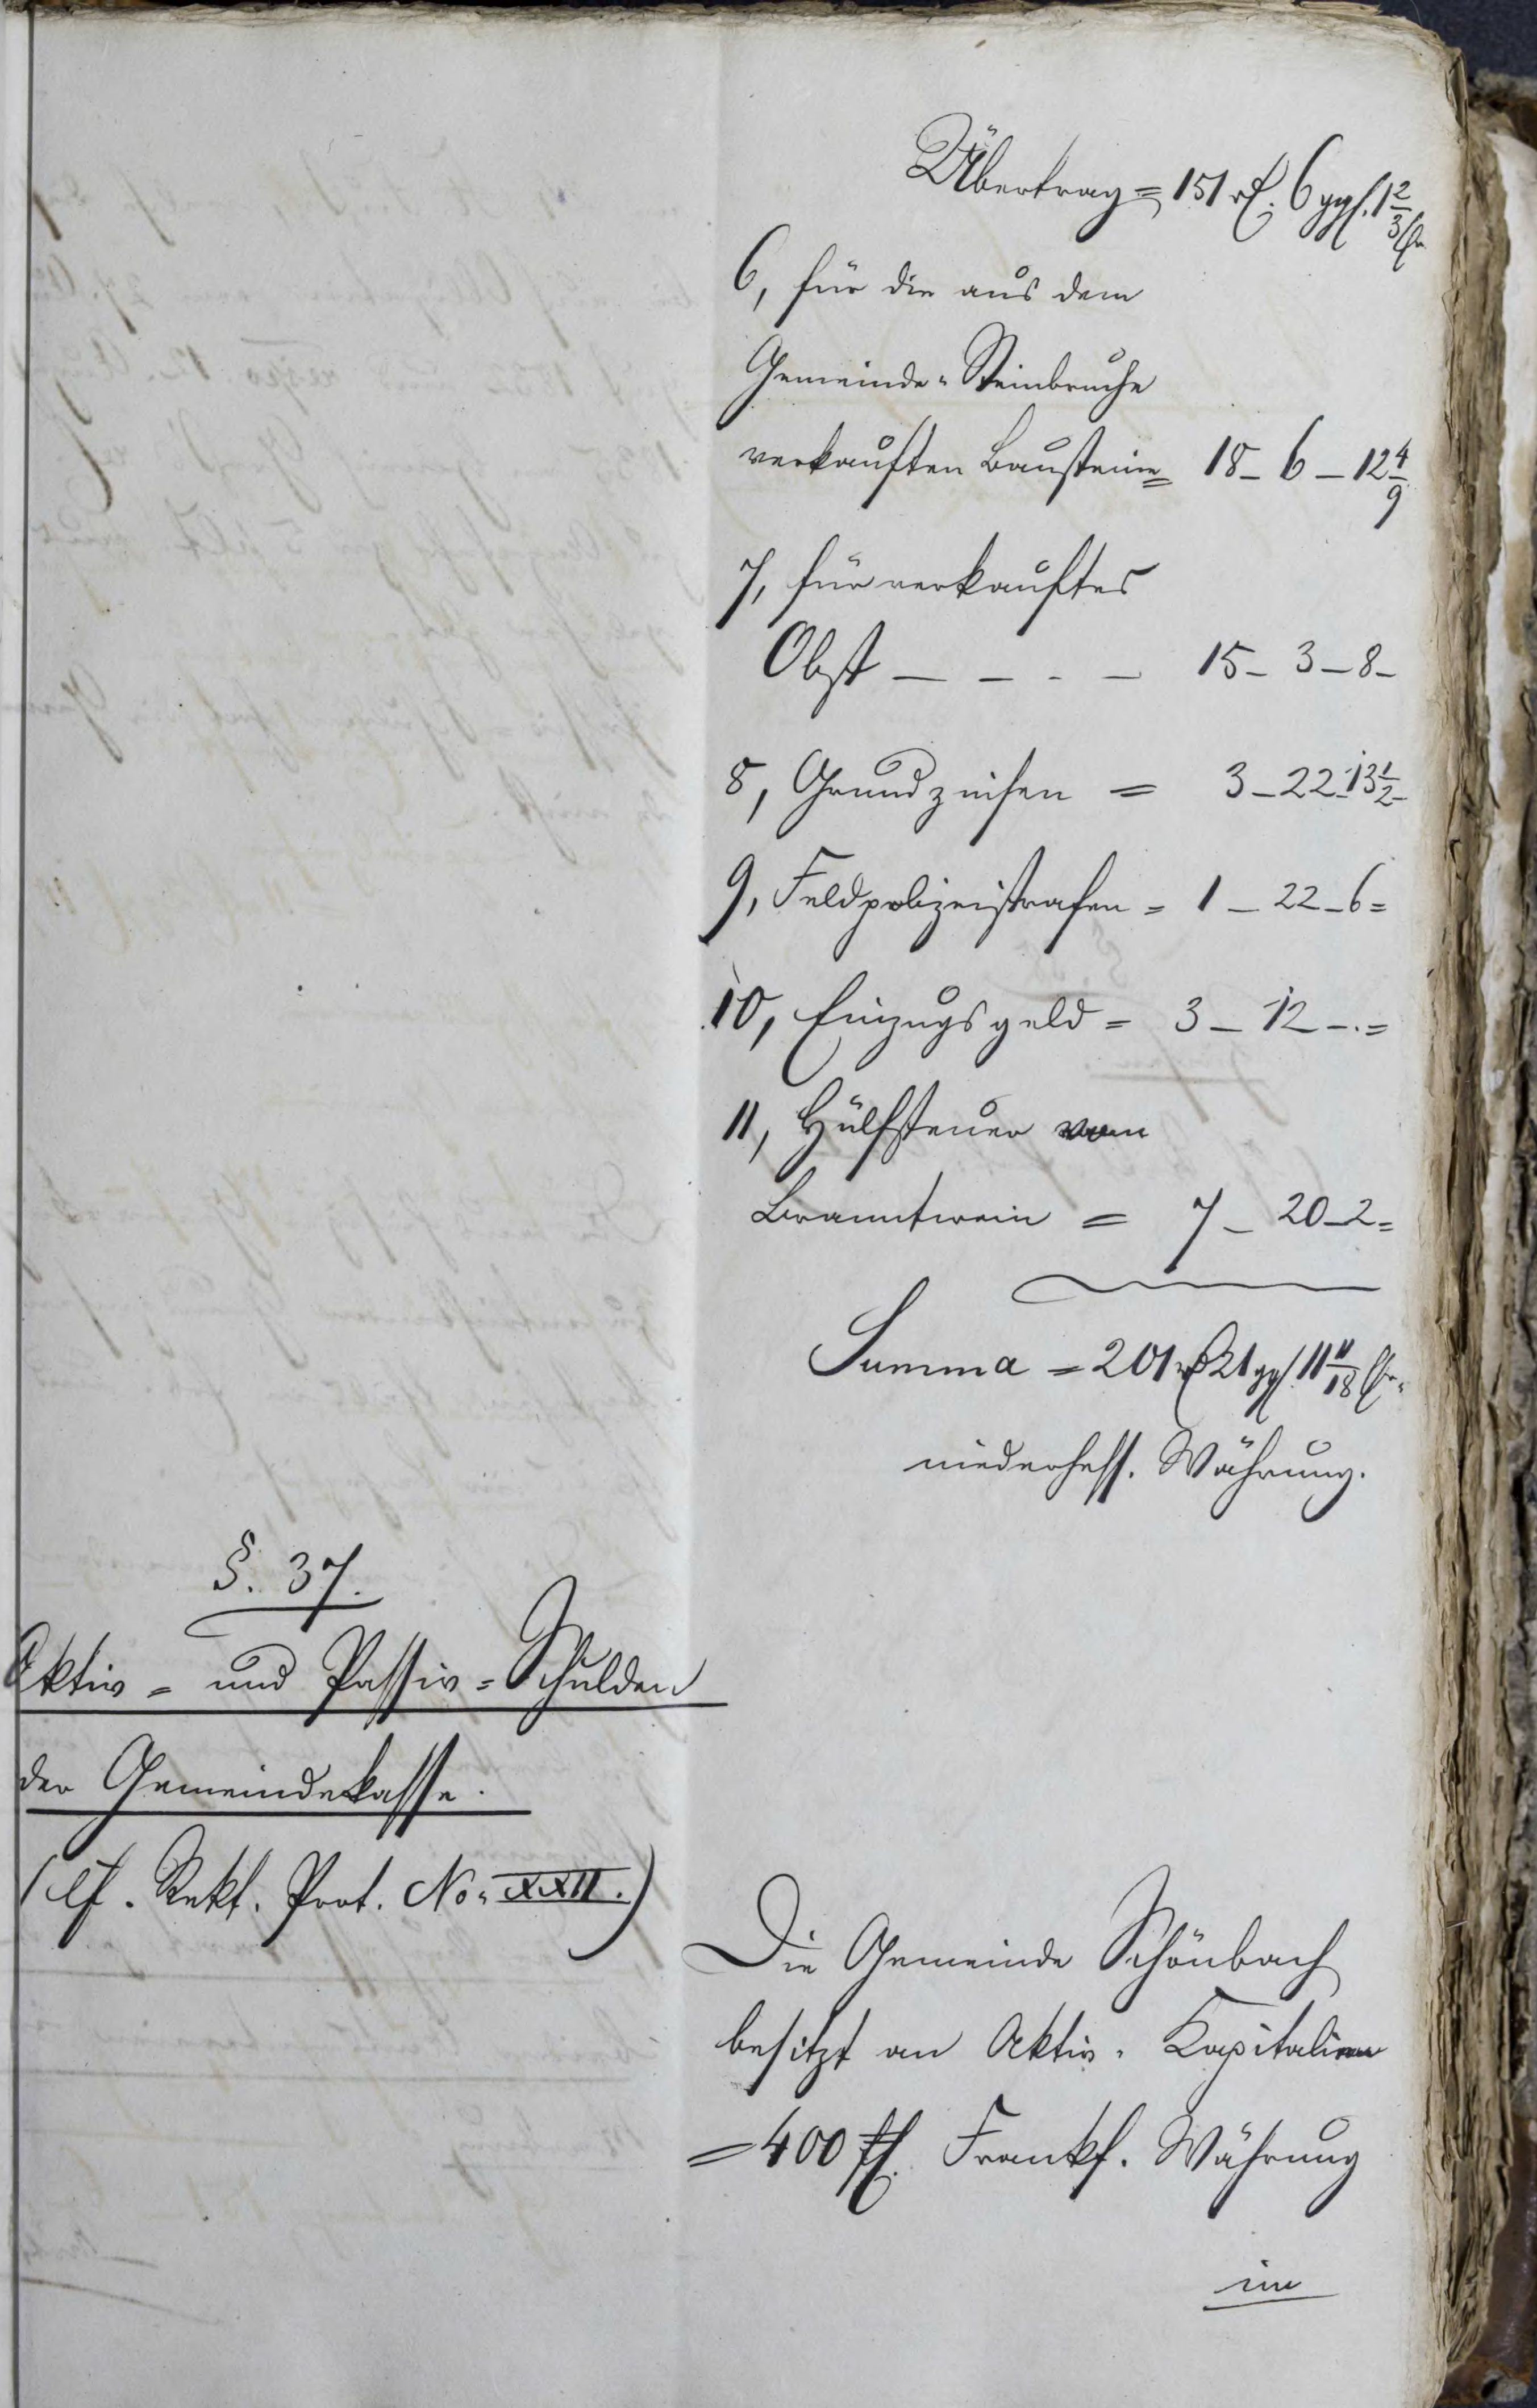 Übertrag = 151 rℓ. 6 ggl. 1 2/3 hlr
6, für die aus dem
Gemeinde-Steinbruche
verkauften Bausteine = 18 - 6 - 12 4/9
7, für verkauftes
Obst - - - - 15 - 3 - 8 -
8, Grundzinsen = 3 - 22 - 13 1/2 -
9, Feldpolizeistrafen = 1 - 22 - 6 =
10, Einzugsgeld = 3 - 12 - . =
11, Hülfsteuer vom
Branntwein = 7 - 20 - 2 =
Summa = 201 rℓ 21 ggl. 11 11/18 hlr.
niederhess. Währung.
§. 37.
Aktiv- und Passiv-Schulden
der Gemeindekasse.
(cf. Rekt. Prot. No. XXII.)
Die Gemeinde Schönbach
besitzt an Aktiv-Kapitalien
= 400 fl. Frankf. Währung
im